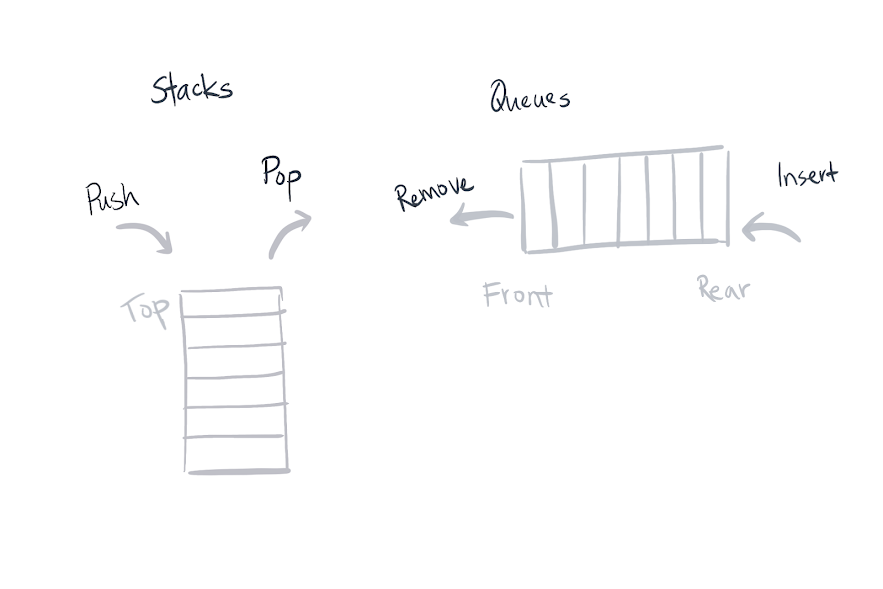 Stacks
Push
Pop
Top
Queues
Remove
Insert
Front
Rear